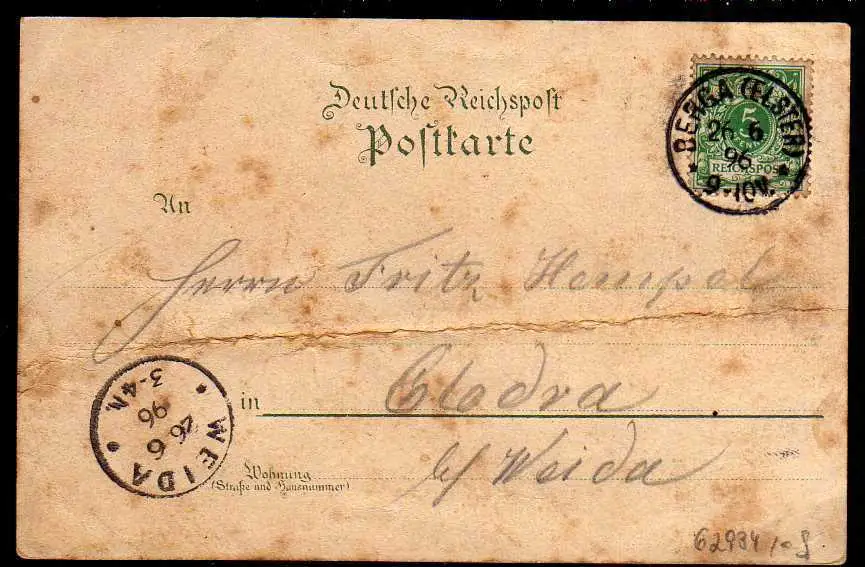 Deutsche Reichspost
Postkarte
5
PFENNIG
REICHSPOST
BERGA (ELSTER)
26 6
96
9-10V.
An
Herrn Fritz Hempel
in Clodra
b/ Weida
Wohnung
(Straße und Hausnummer)
WEIDA
26 6
96
3-4N.
62934